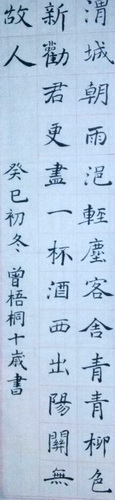 渭城朝雨浥輕塵客舍青青柳色
新勸君更盡一杯酒西出陽關無
故人
癸巳初冬曾梧桐十歲書